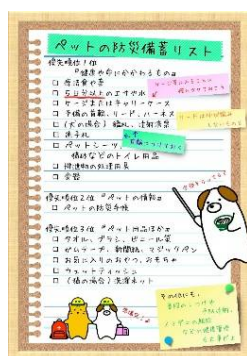 ペットの防災備蓄リスト
優先順位1位
『健康や命にかかわるもの』
□ 療法食や薬
□ 5日分以上のエサや水
□ ケージまたはキャリーケース
□ 予備の首輪、リード、ハーネス
□ (犬の場合) 鑑札、注射済票
□ 迷子札
□ ペットシーツ、
猫砂などのトイレ用品
□ 排泄物の処理用具
□ 食器
優先順位2位 『ペットの情報』
□ ペットの防災手帳
優先順位3位 『ペット用品ほか』
□ タオル、ブラシ、ビニール袋
□ ガムテープ、新聞紙、マジックペン
□ お気に入りのおやつ、おもちゃ
□ ウェットティッシュ
□ (猫の場合) 洗濯ネット
その他にも、